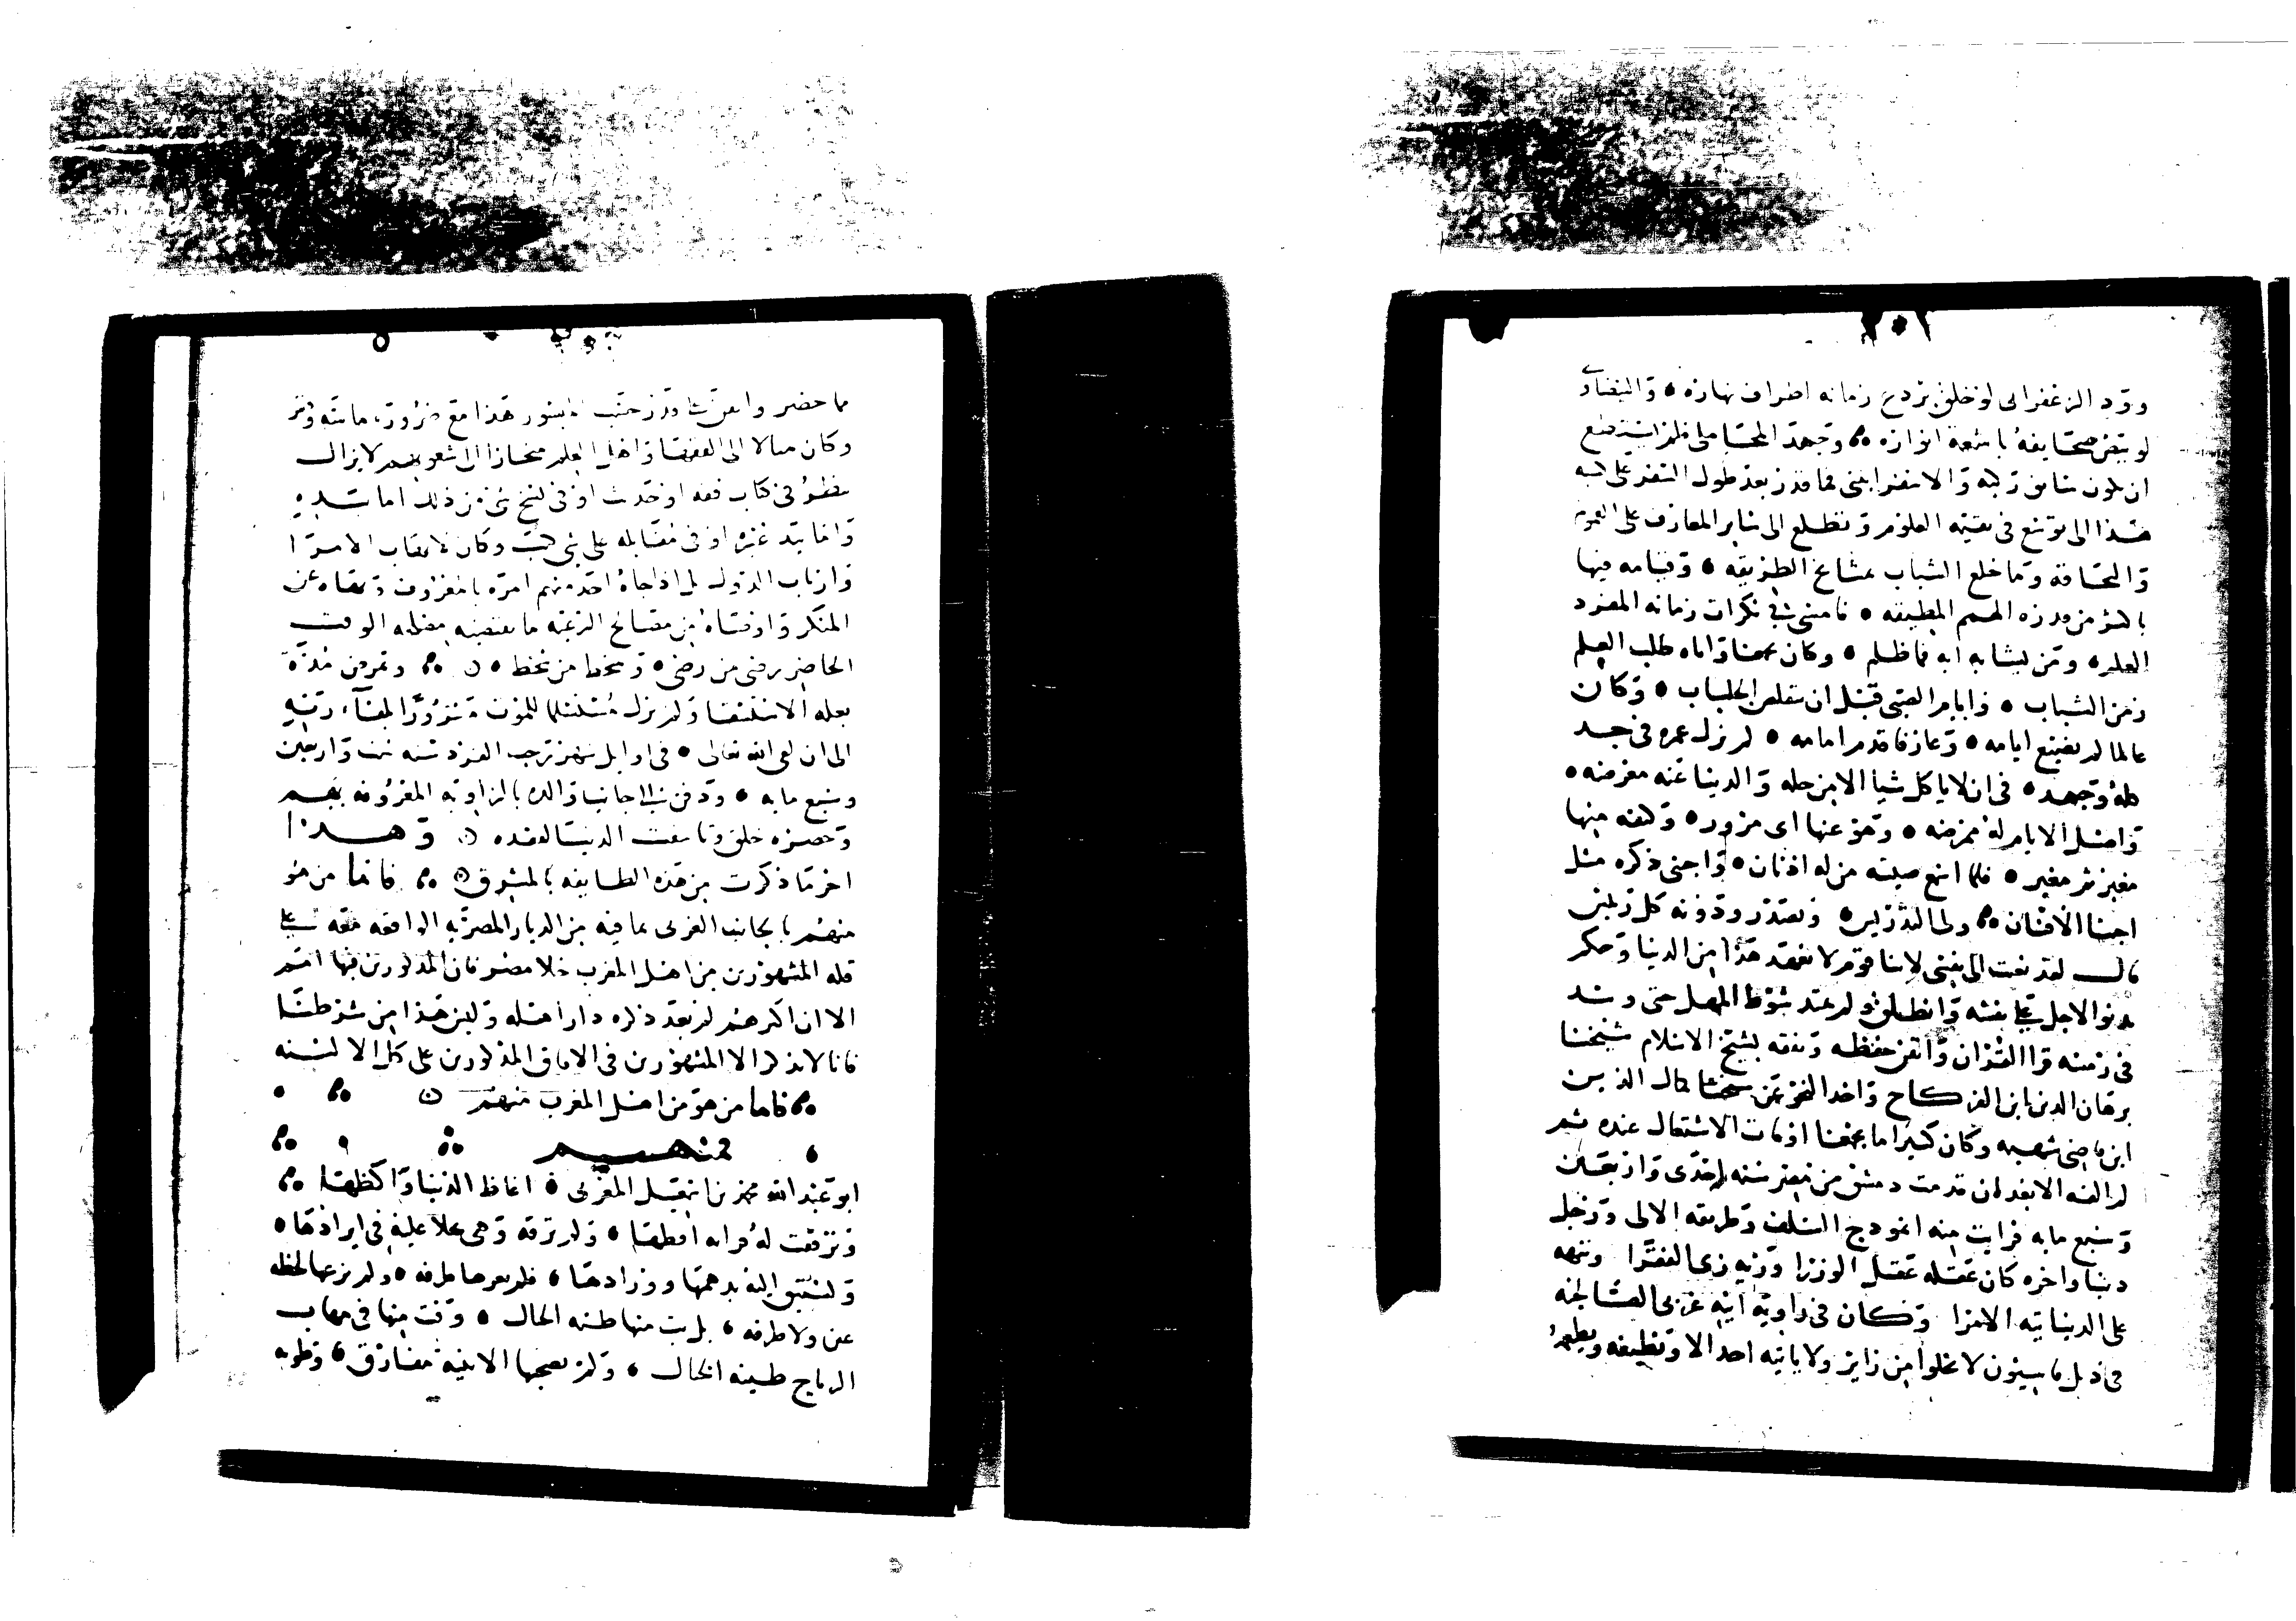 وود الزعفراني لو خلق بردع زمانه اطراف نهاره • والبيضاوي
لو بيض صحايفه باشعة انواره وجهد المحاملي فلم يستطع
ان يكون سابق ركبه والاسفرايني فما قدر بعد طول السفر على
هذا الى توسع في بقية العلوم وتطلع الى ساير المعارف على العموم
وما خلع الشباب بمشايخ الطريقه • وقيامه فيها
من قدره الهمم المطيقه • نامتى في نكرات زمانه المفرد
العلم • ومن يشابه ابه فما ظلم • وكان يجمعنا واياه طلب العلم
زمن الشباب • وايام الصبى قبل ان يتقلص الجلباب • وكان
عالما لم يضيع ايامه • وعارفا قدم امامه • لم يزل عمره في جد
كله وجهد • في ان لا ياكل شيا الا من حله والدنيا عنه معرضه •
واهل الايام له ممرضه • وهو عنها اي مزور • وكفه منها
مغبر ثم مغبر • فلما اتبع صيته من له اذنان • واجنى ذكره مثل
اجنا الافنان ولى التدريس • وتصدر ودونه كل رئيس
قال لقد نعيت الى نفسي لاننا قوم لا نفقد هذا من الدنيا وحكم
بدنو الاجل على نفسه وانطلق ولم يمتد شوط المهل حتى وسد
في رمسه قرا القران واتقن حفظه وتفقه بشيخ الاسلام شيخنا
برهان الدين ابن الفركاح واخد النحو عن شيخنا كمال الدين
ابن قاضي شهبه وكان كثيرا ما يجمعنا اوقات الاشتغال عنده ثم
لم القه الا بعد ان قدمت دمشق من مصر سنه احدى واربعين
وسبع مايه فرايت منه انموذج السلف وطريقه الالى ورجل
دنيا واخره كان عقله عقل الوزرا وزيه زي الفقرا ونبهه
على الدنيا تيه الامرا وكان في زاويه ابيه غربي الصالحيه
في ذيل قاسيون لا تخلوا من زاير ولا ياتيه احد الا ويضيفه ويطعمه
مما حضر هذا مع ضرورته
وكان ميالا الى الفقها واهل العلم منحازا الى شعوبهم لا يزال
ينظر في كتاب فقه او حديث او في نسخ شي من ذلك اما بيده
واما بيد غيره او في مقابله على شي كتب وكان لا يهاب الامرا
وارباب الدول بل اذا جاه احد منهم امره بالمعروف ونهاه عن
المنكر واوصاه من مصالح الرعيه ما يقتضيه الوقت
الحاضر رضي من رضي • وسخط من سخط • وتمرض مدة
بعله الاستسقا ولم يزل مستسلما للموت للقآء ربه
الى ان لقي الله تعالى • في اوايل شهر رجب الفرد سنه ست واربعين
وسبع مايه • ودفن الى جانب والده بالزاويه المعروفه بهم
وحضره خلق وتاسفت الدنيا لفقده وهذا
اخر ما ذكرت من هذه الطايفه بالمشرق فاما من هو
منهم بالجانب الغربي بما فيه من الديار المصريه الواقعه معه على
قله المشهورين من اهل المغرب خلا مصر فان المذكورين بها امم
الا ان اكثرهم لم تبعد ذكره دار اهله وليس هذا من شرطنا
فانا لا نذكر الا المشهورين في الافاق المذكورين على كل الالسنه
فاما من هو من اهل المغرب منهم
فمنهم
ابو عبد الله محمد بن اسمعيل المغربي • اغاظ الدنيا واكظها
وبرقت له فراه • ولم ترقه وهي علا عليه في ايرادها •
ولتسبق اليه بدهمها وورادها • فلم يعرها طرفه • ولم يرعها لحظه
عين ولا طرفه • بل بت منها طينه الحال • وقت منها في مهاب
الرياح طينه الخال • ولم يصحبها الا بنية مفارق •